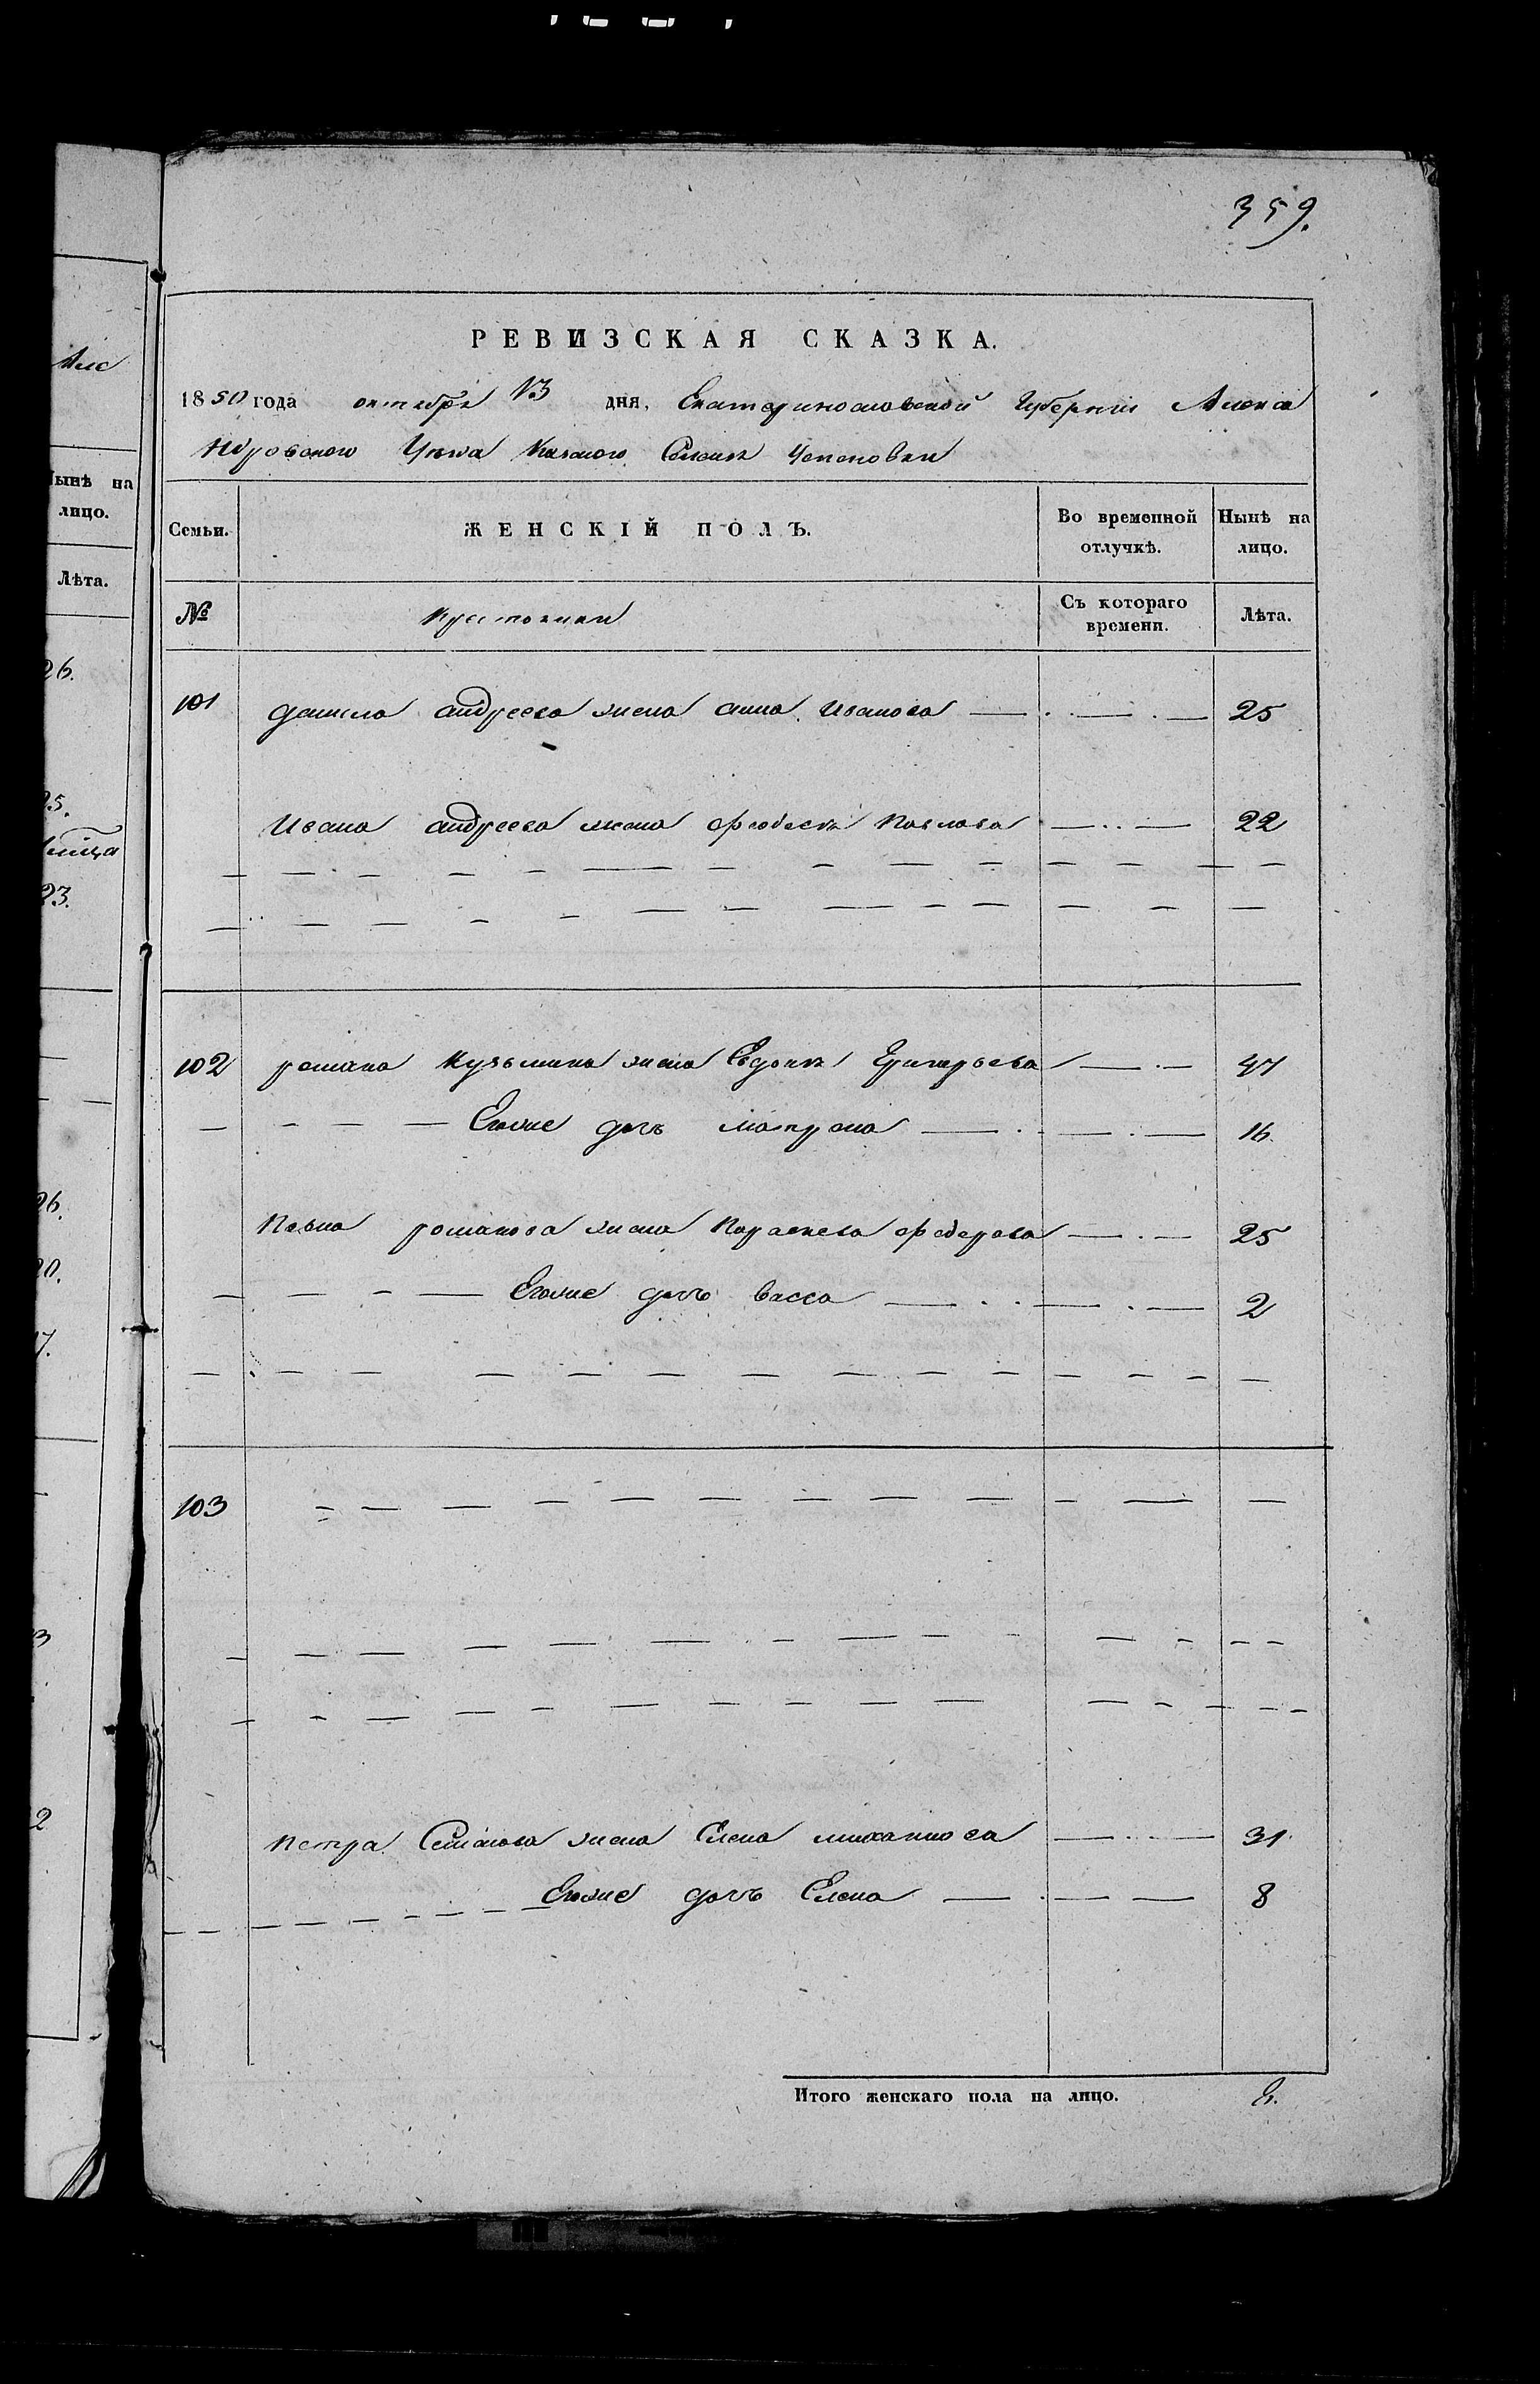 359.
РЕВИЗСКАЯ СКАЗКА.
1850 года октября 13 дня, Екатеринославской Губернии Алекса
ндровского Уезда Казеного Селения
Семьи. ЖЕНСКІЙ ПОЛЪ. Во временной отлучкѣ. Нынѣ на лицо.
№ Крестьянки Съ котораго времени. Лѣта.
101 данила андреева жена анна Иванова 25
Ивана андреева жена феодосия Павлова 22
102 романа Кузьмина жена Евдокия Григорьева 47
Егоже дочь матрона 16
Павла романова жена Параскева федорова 25
Егоже дочь васса 2
103
Петра Семенова жена Елена михайлова 31
Егоже дочь Елена 8
Итого женскаго пола на лицо. 8.
Але
Нынѣ на
лицо.
Лѣта.
26.
25.
23.
26.
20.
17.
3
2